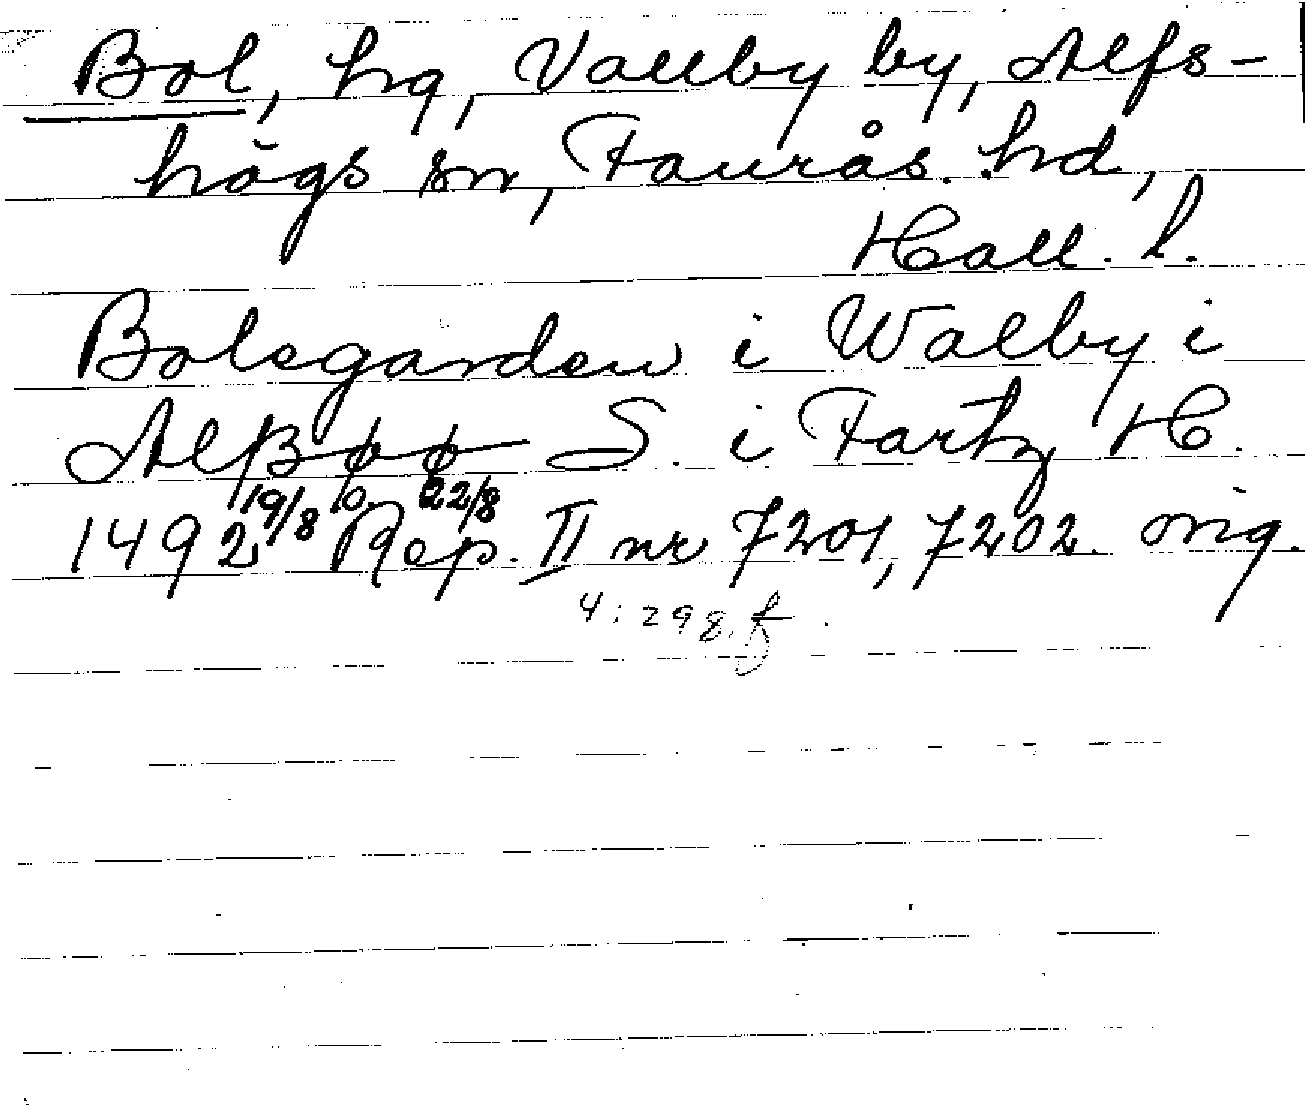 Bol, hg, Vallby by, Alfs-
högs sn, Faurås hd,
Hall. l.
Bolsgarden i Walby i
Alpßøø S. i Fartz H.
1492 19/8 o. 22/8 Rep. II nr 7201, 7202. orig.
4:298.f.